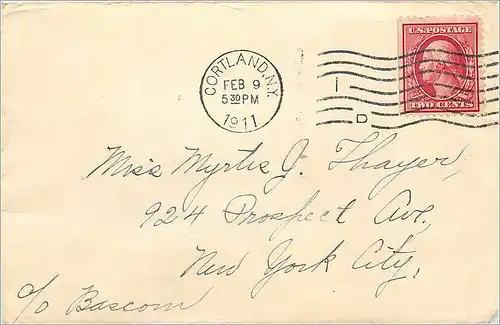 U.S. POSTAGE
TWO CENTS
CORTLAND, N.Y.
FEB 9
5 30 PM
1911
I
D
Miss Myrtis J. Thayer,
924 Prospect Ave.,
New York City,
c/o Bascom